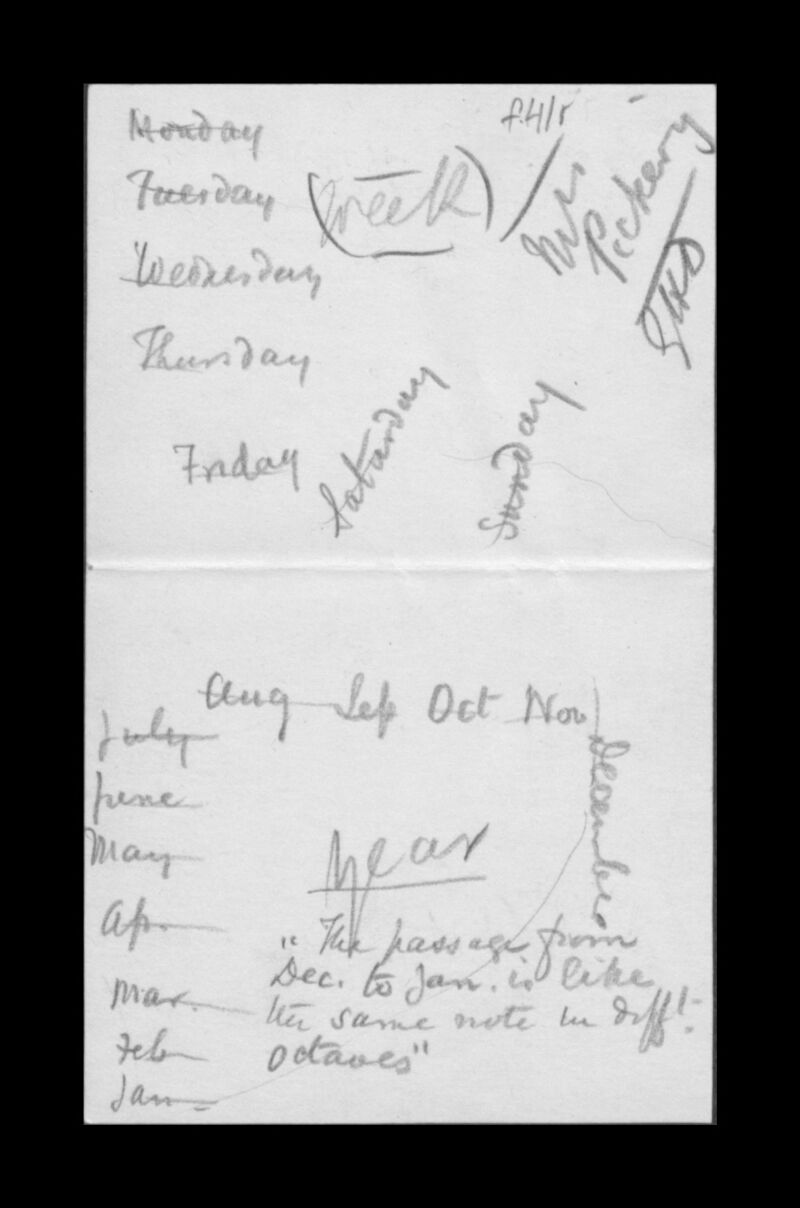 f.4/r
Monday
Tuesday
(Week)
Mrs
Pickery
Wednesday
Thursday
Friday
Saturday
Sunday
Aug Sep Oct Nov
December
July
June
May
Ap.
Mar.
Feb
Jan
Year
"The passage from
Dec. to Jan. is like
the same note in diff!
octaves"